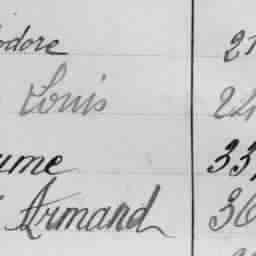 odore 27
Louis 24
ume 33
Armand 36